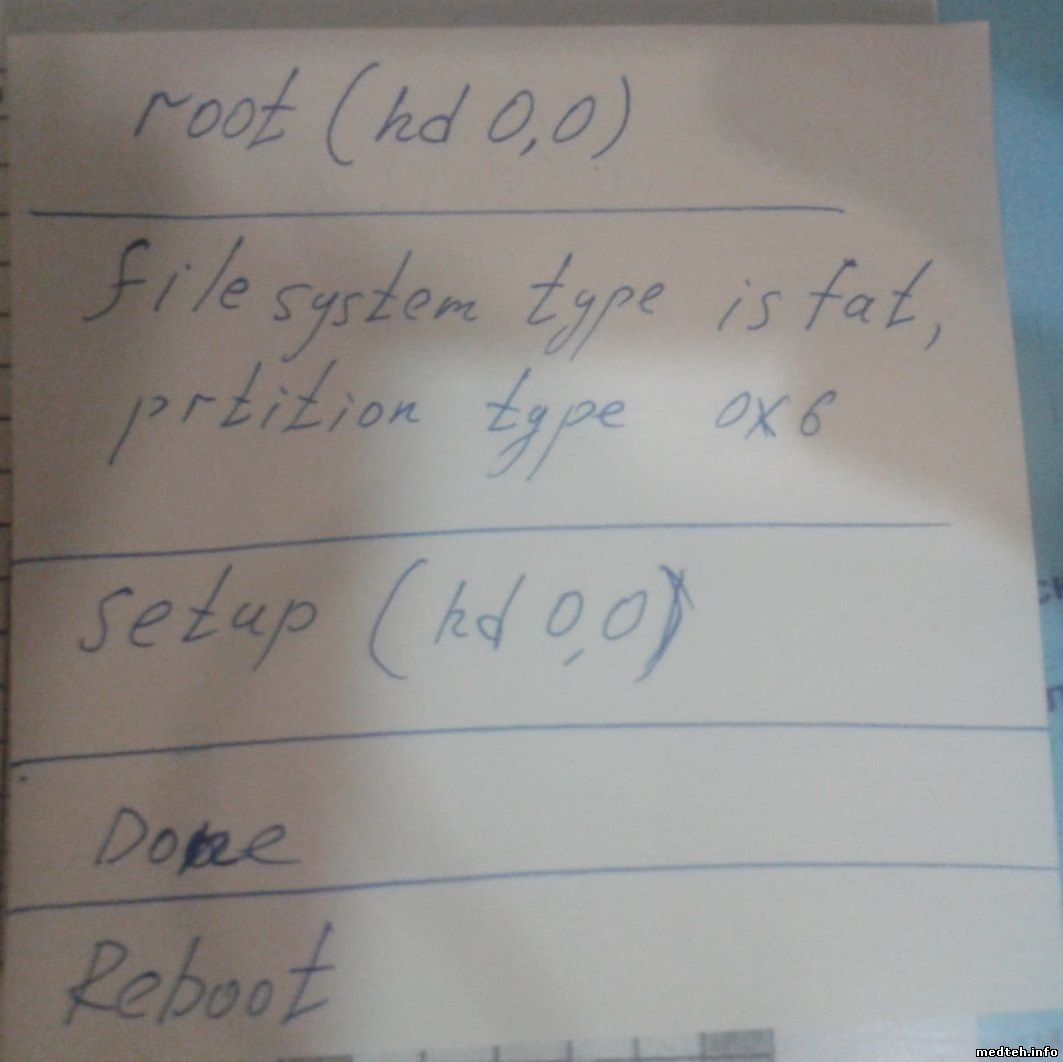 root (hd 0,0)
file system type is fat,
prtition type 0x6
setup (hd 0,0)
Done
Reboot
medteh.info